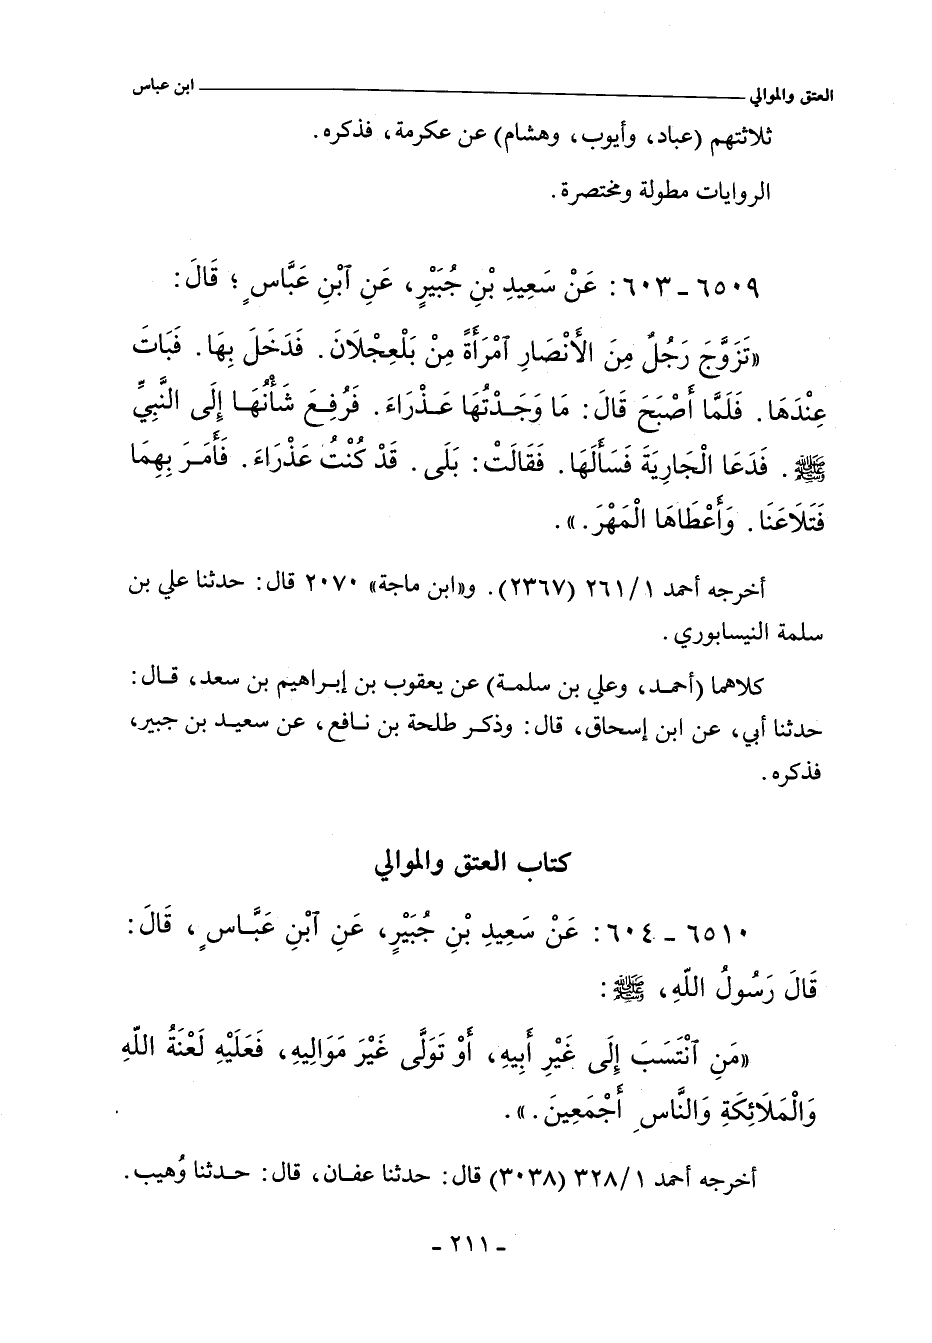 العتق والموالي ـــــــ ابن عباس
ثلاثتهم (عباد، وأيوب، وهشام) عن عكرمة، فذكره.
الروايات مطولة ومختصرة.
٦٥٠٩ - ٦٠٣: عَنْ سَعِيدِ بْنِ جُبَيْرٍ، عَنِ ٱبْنِ عَبَّاسٍ؛ قَالَ:
«تَزَوَّجَ رَجُلٌ مِنَ الْأَنْصَارِ ٱمْرَأَةً مِنْ بَلْعِجْلَانَ. فَدَخَلَ بِهَا. فَبَاتَ
عِنْدَهَا. فَلَمَّا أَصْبَحَ قَالَ: مَا وَجَدْتُهَا عَذْرَاءَ. فَرُفِعَ شَأْنُهَا إِلَى النَّبِيِّ
ﷺ. فَدَعَا الْجَارِيَةَ فَسَأَلَهَا. فَقَالَتْ: بَلَى. قَدْ كُنْتُ عَذْرَاءَ. فَأَمَرَ بِهِمَا
فَتَلَاعَنَا. وَأَعْطَاهَا الْمَهْرَ.».
أخرجه أحمد ٢٦١/١ (٢٣٦٧). و«ابن ماجة» ٢٠٧٠ قال: حدثنا علي بن
سلمة النيسابوري.
كلاهما (أحمد، وعلي بن سلمة) عن يعقوب بن إبراهيم بن سعد، قال:
حدثنا أبي، عن ابن إسحاق، قال: وذكر طلحة بن نافع، عن سعيد بن جبير،
فذكره.
كتاب العتق والموالي
٦٥١٠ - ٦٠٤: عَنْ سَعِيدِ بْنِ جُبَيْرٍ، عَنِ ٱبْنِ عَبَّاسٍ، قَالَ:
قَالَ رَسُولُ اللّهِ، ﷺ:
«مَنِ ٱنْتَسَبَ إِلَى غَيْرِ أَبِيهِ، أَوْ تَوَلَّى غَيْرَ مَوَالِيهِ، فَعَلَيْهِ لَعْنَةُ اللّهِ
وَالْمَلَائِكَةِ وَالنَّاسِ أَجْمَعِينَ.».
أخرجه أحمد ٣٢٨/١ (٣٠٣٨) قال: حدثنا عفان، قال: حدثنا وُهيب.
- ٢١١ -